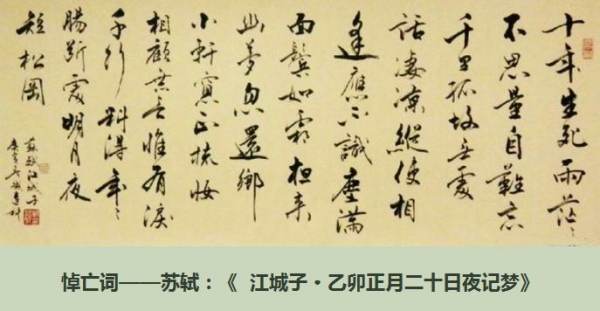 十年生死兩茫〻
不思量自難忘
千里孤坟無處
話凄涼縱使相
逢應不識塵滿
面鬢如霜来
幽夢忽還鄉
小軒窗正梳妝
相顧無言惟有淚
千行料得年〻
腸斷處明月夜
短松岡
蘇軾江城子
悼亡词——苏轼：《 江城子·乙卯正月二十日夜记梦》